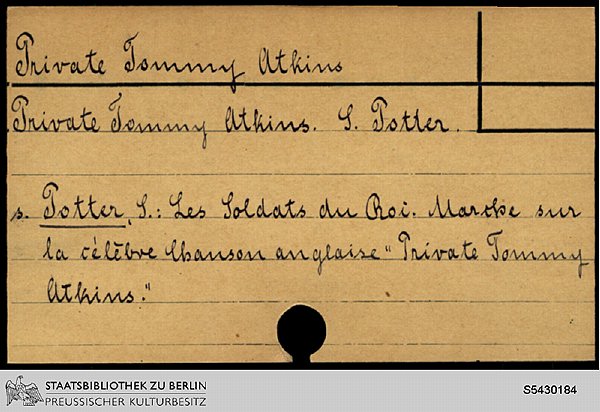 Private Tommy Atkins
Private Tommy Atkins. S. Potter.
s. Potter, S.: Les Soldats du Roi. Marche sur
la célèbre Chanson anglaise "Private Tommy
Atkins."
STAATSBIBLIOTHEK ZU BERLIN
PREUSSISCHER KULTURBESITZ
S5430184